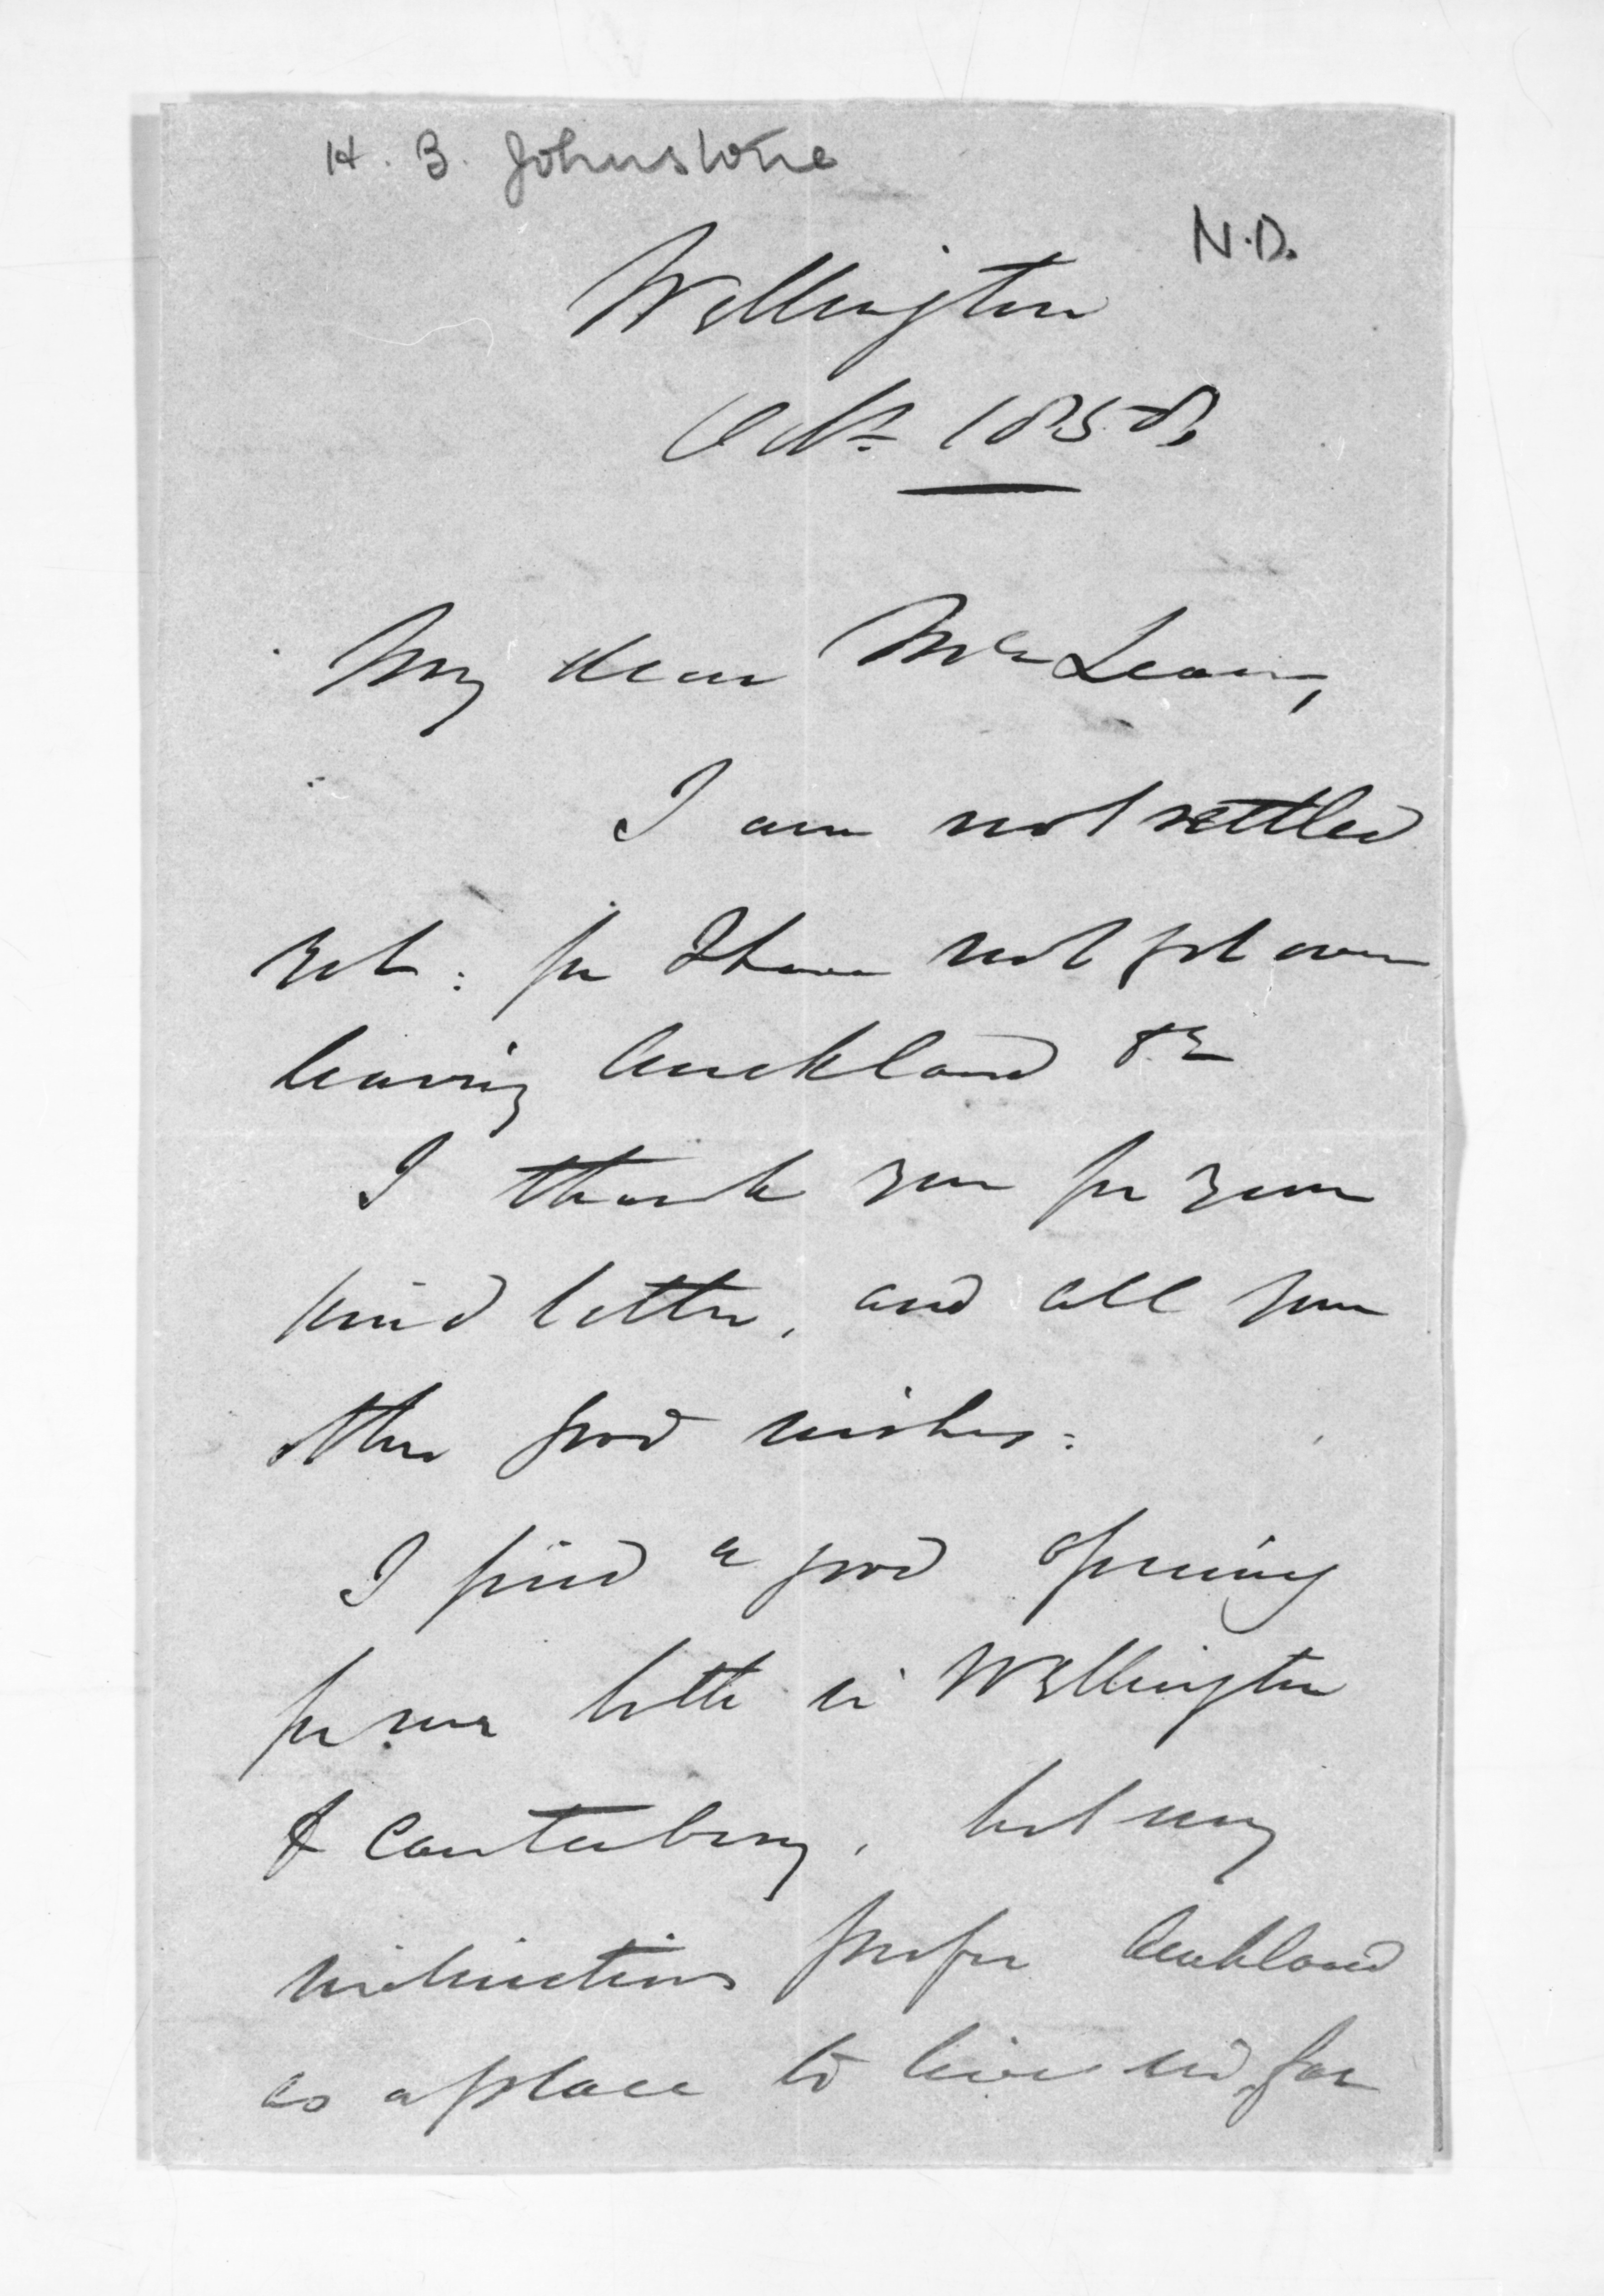 H. B. Johnstone
N.D.
Wellington
Octr. 1858,
My dear McLean,
I am not settled
yet: for I have not got over
leaving Auckland &c
I thank you for your
kind letter, and all your
other good wishes:
I find a good opening
for me both in Wellington
& Canterbury, but my
inclinations prefer Auckland
as a place to live in, far